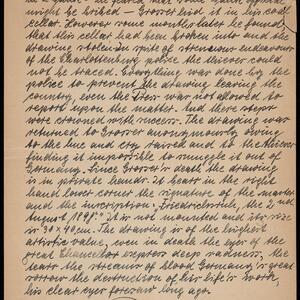 might be broken - Groever hid it in his coal
cellar. However some months later he found
that his cellar had been broken into and the
drawing stolen. In spite of strenuous endeavours
of the Charlottenburg police the thiever could
not be traced. Everything was done by the
police to prevent the drawing leaving the
country, even the Press was not allowed to
report upon the matter. And their steps
were crowned with success. The drawing was
returned to Groever anonymously owing
to the hue and cry raised and to the thiever
finding it impossible to smuggle it out of
Germany. Since Groever's death the drawing
is in private hands. It bears in the right
hand lower corner the signature of the master
and the inscription, Friedrichsruh, the 2nd
August 1898. It is not mounted and its size
is 30 x 40 cm. The drawing is of the highest
artistic value, even in death the eyes of the
great Chancellor express deep sadness, the
tears, the streams of blood Germany's great
sorrow the destruction of his life's work,
his clear eyes foresaw long ago.